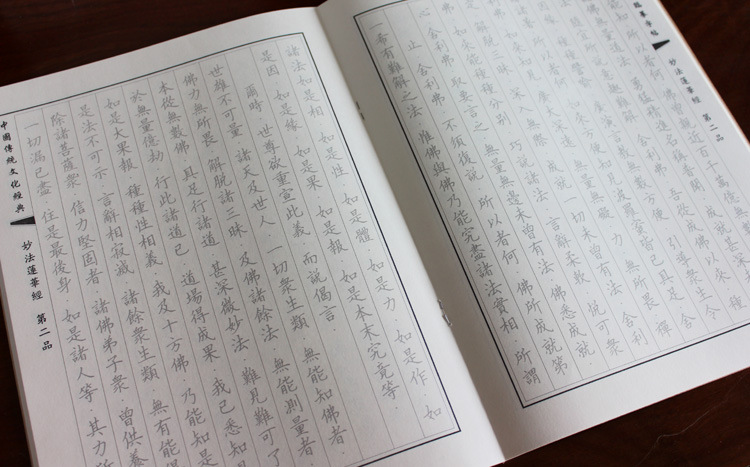 妙法蓮華經 第二品
能知 所以者何 佛曾親近百千萬億
諸佛無量道法 勇猛精進 名稱普聞 成就甚深
隨宜所說意趣難解 舍利弗 吾從成佛以來 種
種譬喻 無數方便 引導眾生 令
所以者何 如來方便 知見波羅蜜 皆已具足
如來知見 廣大深遠 無量無礙 力 無所畏 禪
定 解脫三昧 深入無際 成就一切未曾有法 舍利
弗 如來能種種分別 巧說諸法 言辭柔軟 悅可眾
心 舍利弗 取要言之 無量無邊未曾有法 佛悉成就
止 舍利弗 不須復說 所以者何 佛所成就第
一希有難解之法 唯佛與佛乃能究盡諸法實相 所謂
諸法如是相 如是性 如是體 如是力 如是作 如
是因 如是緣 如是果 如是報 如是本末究竟等
爾時 世尊欲重宣此義 而說偈言
世雄不可量 諸天及世人 一切眾生類 無能知佛者
佛力無所畏 解脫諸三昧 及佛諸餘法 無能測量者
本從無數佛 具足行諸道 甚深微妙法 難見難可了
於無量億劫 行此諸道已 道場得成果 我已悉知
如是大果報 種種性相義 我及十方佛 乃能知是
是法不可示 言辭相寂滅 諸餘眾生類 無有能得
除諸菩薩眾 信力堅固者 諸佛弟子眾 曾供養
一切漏已盡 住是最後身 如是諸人等 其力
中國傳統文化經典
妙法蓮華經 第二品